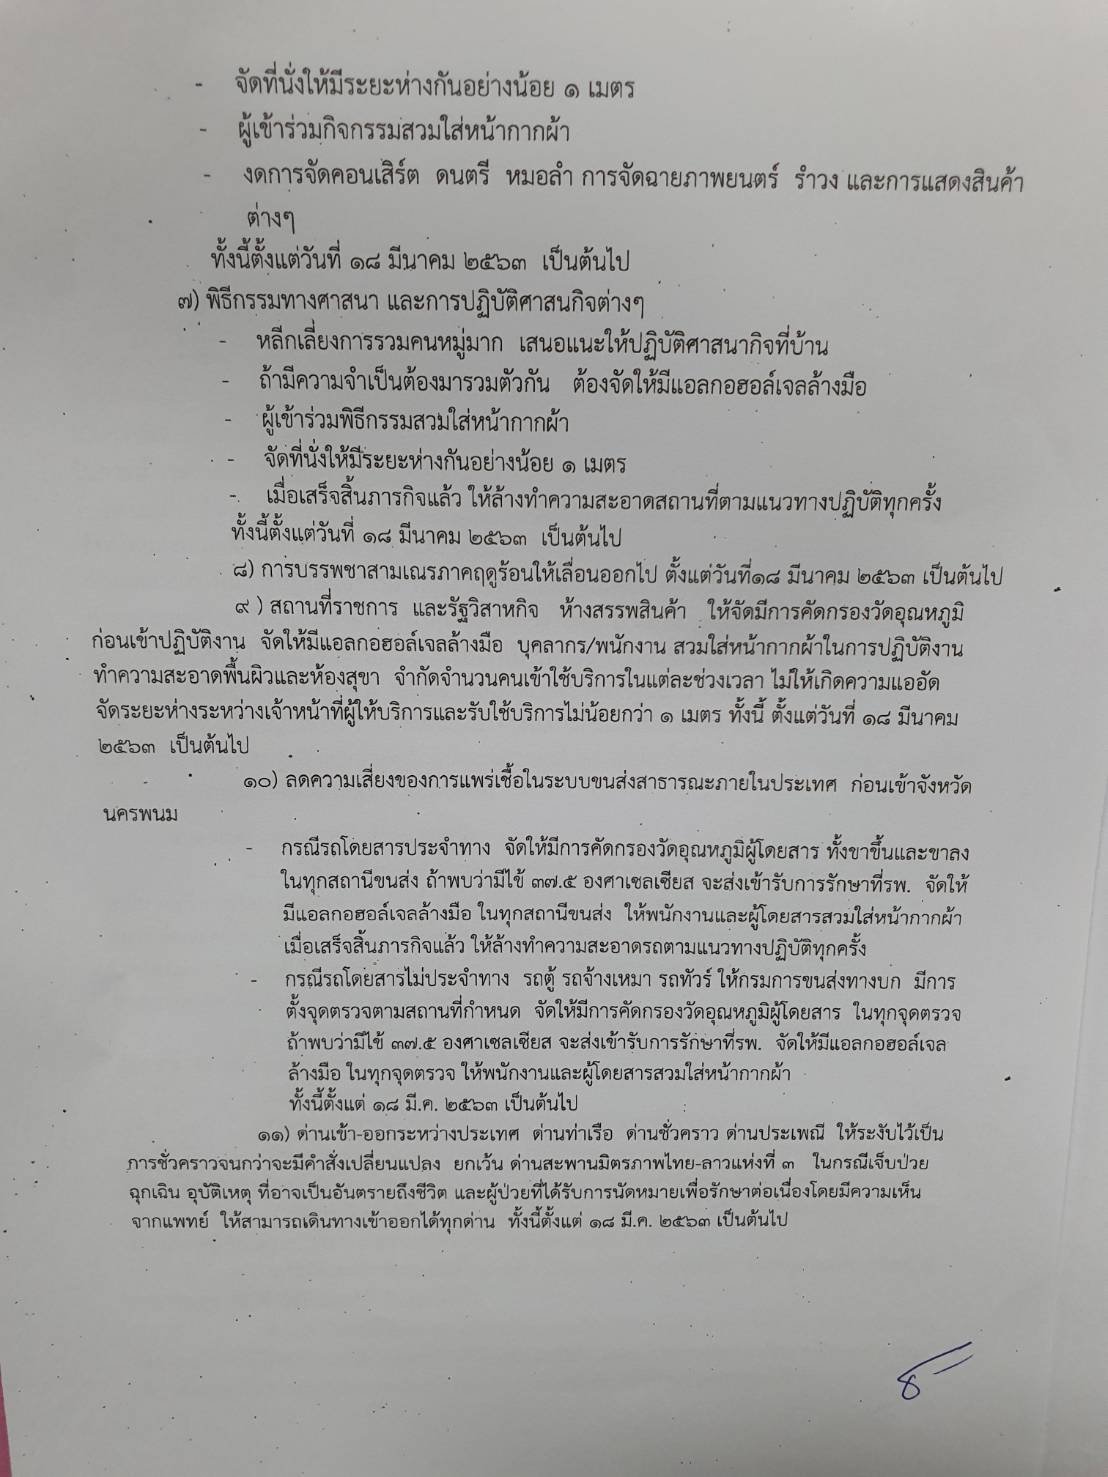 - จัดที่นั่งให้มีระยะห่างกันอย่างน้อย ๑ เมตร
- ผู้เข้าร่วมกิจกรรมสวมใส่หน้ากากผ้า
- งดการจัดคอนเสิร์ต ดนตรี หมอลำ การจัดฉายภาพยนตร์ รำวง และการแสดงสินค้า
ต่างๆ
ทั้งนี้ตั้งแต่วันที่ ๑๘ มีนาคม ๒๕๖๓ เป็นต้นไป
๗) พิธีกรรมทางศาสนา และการปฏิบัติศาสนกิจต่างๆ
- หลีกเลี่ยงการรวมคนหมู่มาก เสนอแนะให้ปฏิบัติศาสนากิจที่บ้าน
- ถ้ามีความจำเป็นต้องมารวมตัวกัน ต้องจัดให้มีแอลกอฮอล์เจลล้างมือ
- ผู้เข้าร่วมพิธีกรรมสวมใส่หน้ากากผ้า
- จัดที่นั่งให้มีระยะห่างกันอย่างน้อย ๑ เมตร
- เมื่อเสร็จสิ้นภารกิจแล้ว ให้ล้างทำความสะอาดสถานที่ตามแนวทางปฏิบัติทุกครั้ง
ทั้งนี้ตั้งแต่วันที่ ๑๘ มีนาคม ๒๕๖๓ เป็นต้นไป
๘) การบรรพชาสามเณรภาคฤดูร้อนให้เลื่อนออกไป ตั้งแต่วันที่๑๘ มีนาคม ๒๕๖๓ เป็นต้นไป
๙ ) สถานที่ราชการ และรัฐวิสาหกิจ ห้างสรรพสินค้า ให้จัดมีการคัดกรองวัดอุณหภูมิ
ก่อนเข้าปฏิบัติงาน จัดให้มีแอลกอฮอล์เจลล้างมือ บุคลากร/พนักงาน สวมใส่หน้ากากผ้าในการปฏิบัติงาน
ทำความสะอาดพื้นผิวและห้องสุขา จำกัดจำนวนคนเข้าใช้บริการในแต่ละช่วงเวลา ไม่ให้เกิดความแออัด
จัดระยะห่างระหว่างเจ้าหน้าที่ผู้ให้บริการและรับใช้บริการไม่น้อยกว่า ๑ เมตร ทั้งนี้ ตั้งแต่วันที่ ๑๘ มีนาคม
๒๕๖๓ เป็นต้นไป
๑๐) ลดความเสี่ยงของการแพร่เชื้อในระบบขนส่งสาธารณะภายในประเทศ ก่อนเข้าจังหวัด
นครพนม
- กรณีรถโดยสารประจำทาง จัดให้มีการคัดกรองวัดอุณหภูมิผู้โดยสาร ทั้งขาขึ้นและขาลง
ในทุกสถานีขนส่ง ถ้าพบว่ามีไข้ ๓๗.๕ องศาเซลเซียส จะส่งเข้ารับการรักษาที่รพ. จัดให้
มีแอลกอฮอล์เจลล้างมือ ในทุกสถานีขนส่ง ให้พนักงานและผู้โดยสารสวมใส่หน้ากากผ้า
เมื่อเสร็จสิ้นภารกิจแล้ว ให้ล้างทำความสะอาดรถตามแนวทางปฏิบัติทุกครั้ง
- กรณีรถโดยสารไม่ประจำทาง รถตู้ รถจ้างเหมา รถทัวร์ ให้กรมการขนส่งทางบก มีการ
ตั้งจุดตรวจตามสถานที่กำหนด จัดให้มีการคัดกรองวัดอุณหภูมิผู้โดยสาร ในทุกจุดตรวจ
ถ้าพบว่ามีไข้ ๓๗.๕ องศาเซลเซียส จะส่งเข้ารับการรักษาที่รพ. จัดให้มีแอลกอฮอล์เจล
ล้างมือ ในทุกจุดตรวจ ให้พนักงานและผู้โดยสารสวมใส่หน้ากากผ้า
ทั้งนี้ตั้งแต่ ๑๘ มี.ค. ๒๕๖๓ เป็นต้นไป
๑๑) ด่านเข้า-ออกระหว่างประเทศ ด่านท่าเรือ ด่านชั่วคราว ด่านประเพณี ให้ระงับไว้เป็น
การชั่วคราวจนกว่าจะมีคำสั่งเปลี่ยนแปลง ยกเว้น ด่านสะพานมิตรภาพไทย-ลาวแห่งที่ ๓ ในกรณีเจ็บป่วย
ฉุกเฉิน อุบัติเหตุ ที่อาจเป็นอันตรายถึงชีวิต และผู้ป่วยที่ได้รับการนัดหมายเพื่อรักษาต่อเนื่องโดยมีความเห็น
จากแพทย์ ให้สามารถเดินทางเข้าออกได้ทุกด่าน ทั้งนี้ตั้งแต่ ๑๘ มี.ค. ๒๕๖๓ เป็นต้นไป